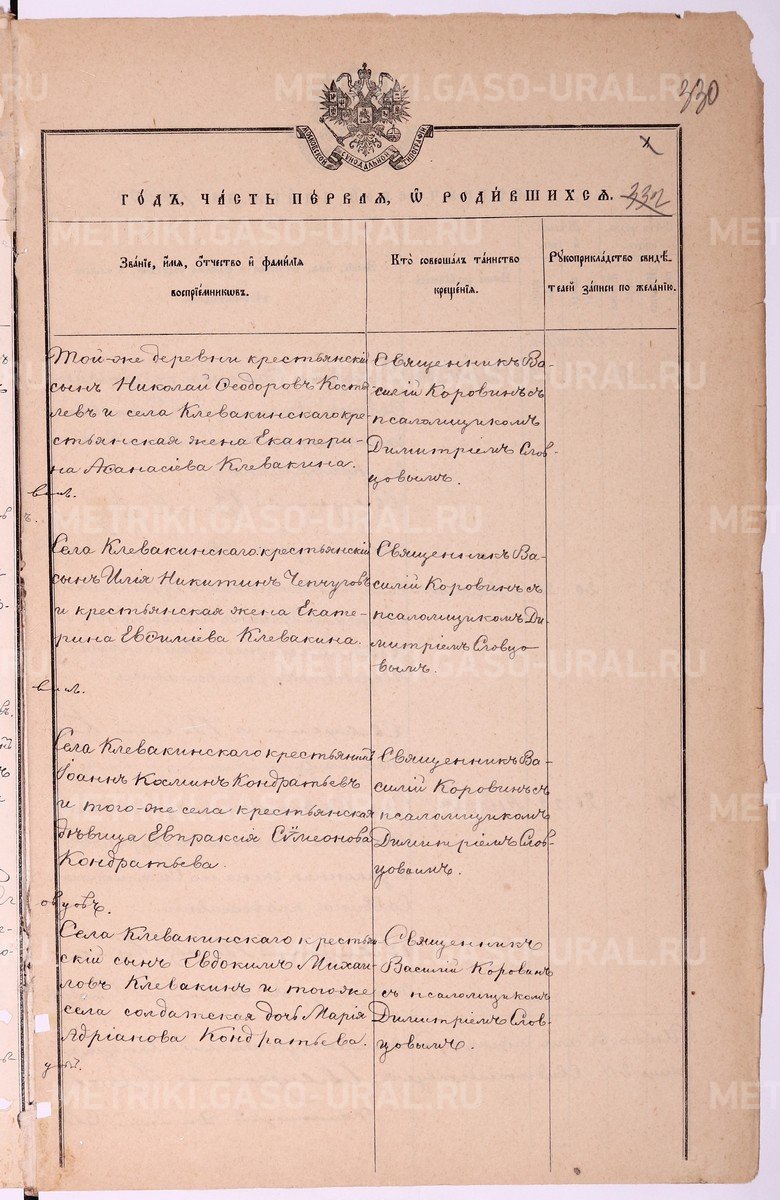 330
МОСКОВСКОЙ СѴНОДАЛЬНОЙ ТИПОГРАФІИ
ГО́ДЪ, ЧА́СТЬ ПЕ́РВАЯ, Ѽ РОДИ́ВШИХСЯ. 332
Зва́нїе, и҆́мя, ѻ҆́тчество и҆ фами́лїя
воспрїе́мникѡвъ.
Кто̀ соверша́лъ та́инство
креще́нїя.
Рꙋкоприкла́дство свидѣ́-
телей за́писи по жела́нїю.
Той-же деревни крестьянскій
сынъ Николай Ѳеодоровъ Косты-
левъ и села Клевакинскаго кре-
стьянская жена Екатери-
на Аѳанасіева Клевакина.
Священникъ Ва-
силій Коровинъ съ
псаломщикомъ
Димитріемъ Слов-
цовымъ.
Села Клевакинскаго крестьянскій
сынъ Илія Никитинъ Чепчуговъ
и крестьянская жена Екате-
рина Евѳиміева Клевакина.
Священникъ Ва-
силій Коровинъ съ
псаломщикомъ Ди-
митріемъ Словцо
вымъ.
Села Клевакинскаго крестьянинъ
Іоаннъ Косминъ Кондратьевъ
и того-же села крестьянская
дѣвица Евпраксія Сѵмеонова
Кондратьева.
Священникъ Ва-
силій Коровинъ съ
псаломщикомъ
Димитріемъ Слов-
цовымъ.
Села Клевакинскаго крестьян-
скій сынъ Евдокимъ Михаи-
ловъ Клевакинъ и того же
села солдатская дочь Марія
Адріанова Кондратьева.
Священникъ
Василій Коровинъ
съ псаломщикомъ
Димитріемъ Слов-
цовымъ.
METRIKI.GASO-URAL.RU